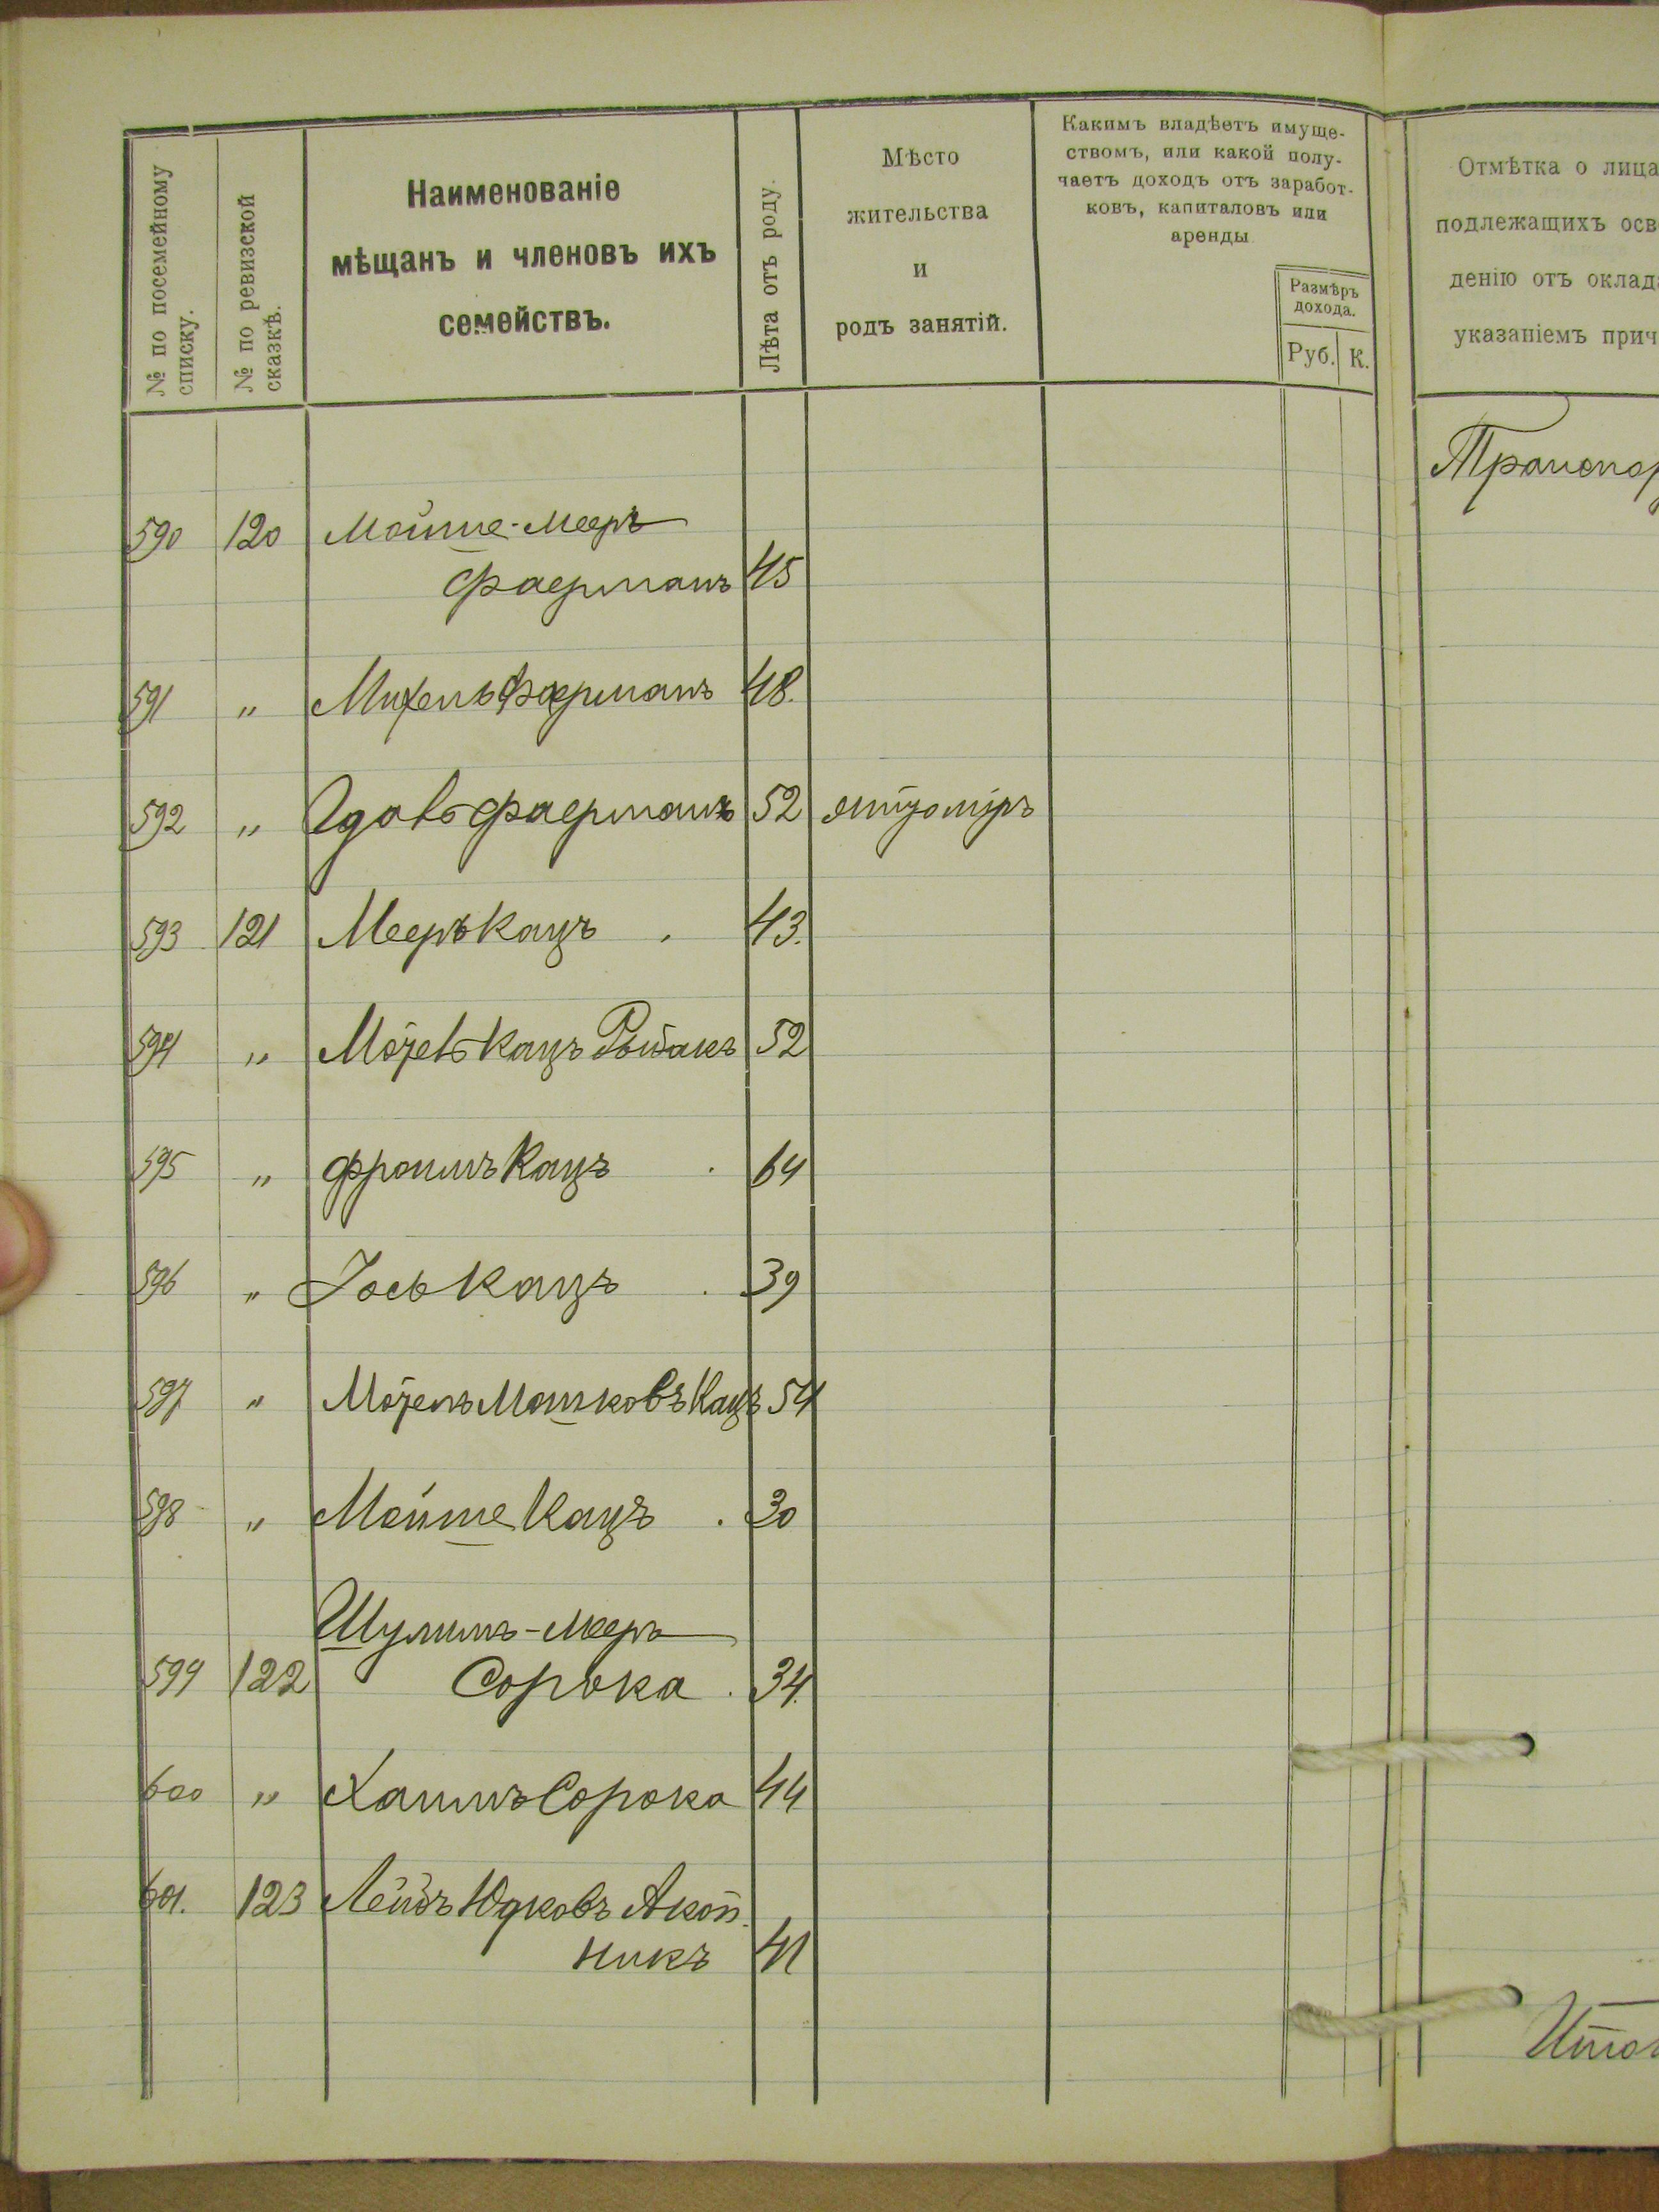 № по посемейному списку.
№ по ревизской сказкѣ.
Наименованіе
мѣщанъ и членовъ ихъ
семействъ.
Лѣта отъ роду.
Мѣсто
жительства
и
родъ занятій.
Какимъ владѣетъ имуще-
ствомъ, или какой полу-
чаетъ доходъ отъ заработ-
ковъ, капиталовъ или
аренды
Размѣръ
дохода.
Руб. К.
Отмѣтка о лица
подлежащихъ осв
денію отъ оклад
указаніемъ прич
Транспор
590 120 Мойше-Мееръ
Фаерманъ 45
591 „ Михель Фаерманъ 48.
592 „ Фаерманъ 52
593 121 Мееръ Кацъ 43.
594 „ Кацъ 52
595 „ Фроимъ Кацъ 64
596 „ Іось Кацъ 39
597 „ Мошковъ Кацъ 54
598 „ Мойше Кацъ 30
Шулимъ-Мееръ
599 122 Сорока 34.
600 „ Хаимъ Сорока 44
601. 123 Лейбъ Юдковъ
никъ 41
Итог